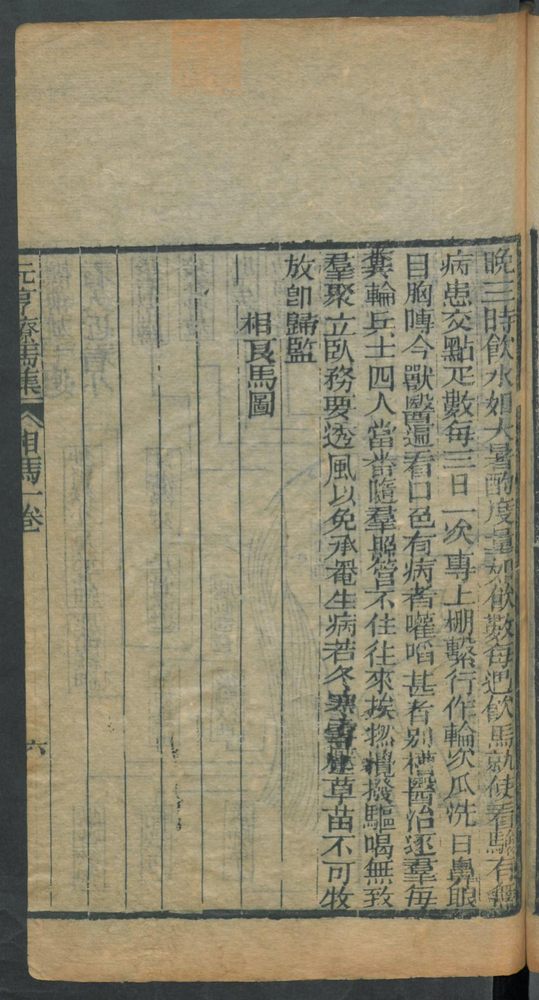 晚三時飲水如大暑酌度量加飲數每遇飲馬就使看驗有無
病患交點疋數每三日一次專上棚繫行作輪次瓜洗口鼻眼
目胸啌令獸醫遍看口色有病者嚾啗甚者别槽醫治逐羣每
糞輪兵士四人當番隨羣照管不住往來挨撥驅喝無致
羣聚立臥務要透風以免承奄生病若冬寒草苗不可牧
放卽歸監
相良馬圖
元亨療馬集 相馬一卷 六